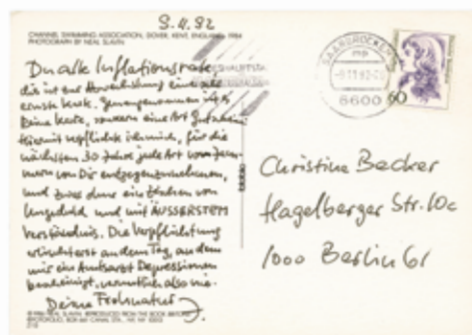 8.11.92
CHANNEL SWIMMING ASSOCIATION, DOVER, KENT, ENGLAND, 1984
PHOTOGRAPH BY NEAL SLAVIN
Du alte Inflationsrate,
dies ist zur Abwechslung eine
ernste Karte. Genaugenommen ist's
keine Karte, sondern eine Art Gutschein
Hiermit verpflichte ich mich, für die
nächsten 30 Jahre jede Art von Jam-
mern von Dir entgegenzunehmen,
und zwar ohne ein Zeichen von
Ungeduld und mit ÄUSSERSTEM
Verständnis. Die Verpflichtung
erlischt erst an dem Tag, an dem
mir ein Amtsarzt Depressionen
bescheinigt, vermutlich also nie.
Deine
SAARBRÜCKEN
6600
60
Christina Becker
Hagelberger Str. 10c
1000 Berlin 61